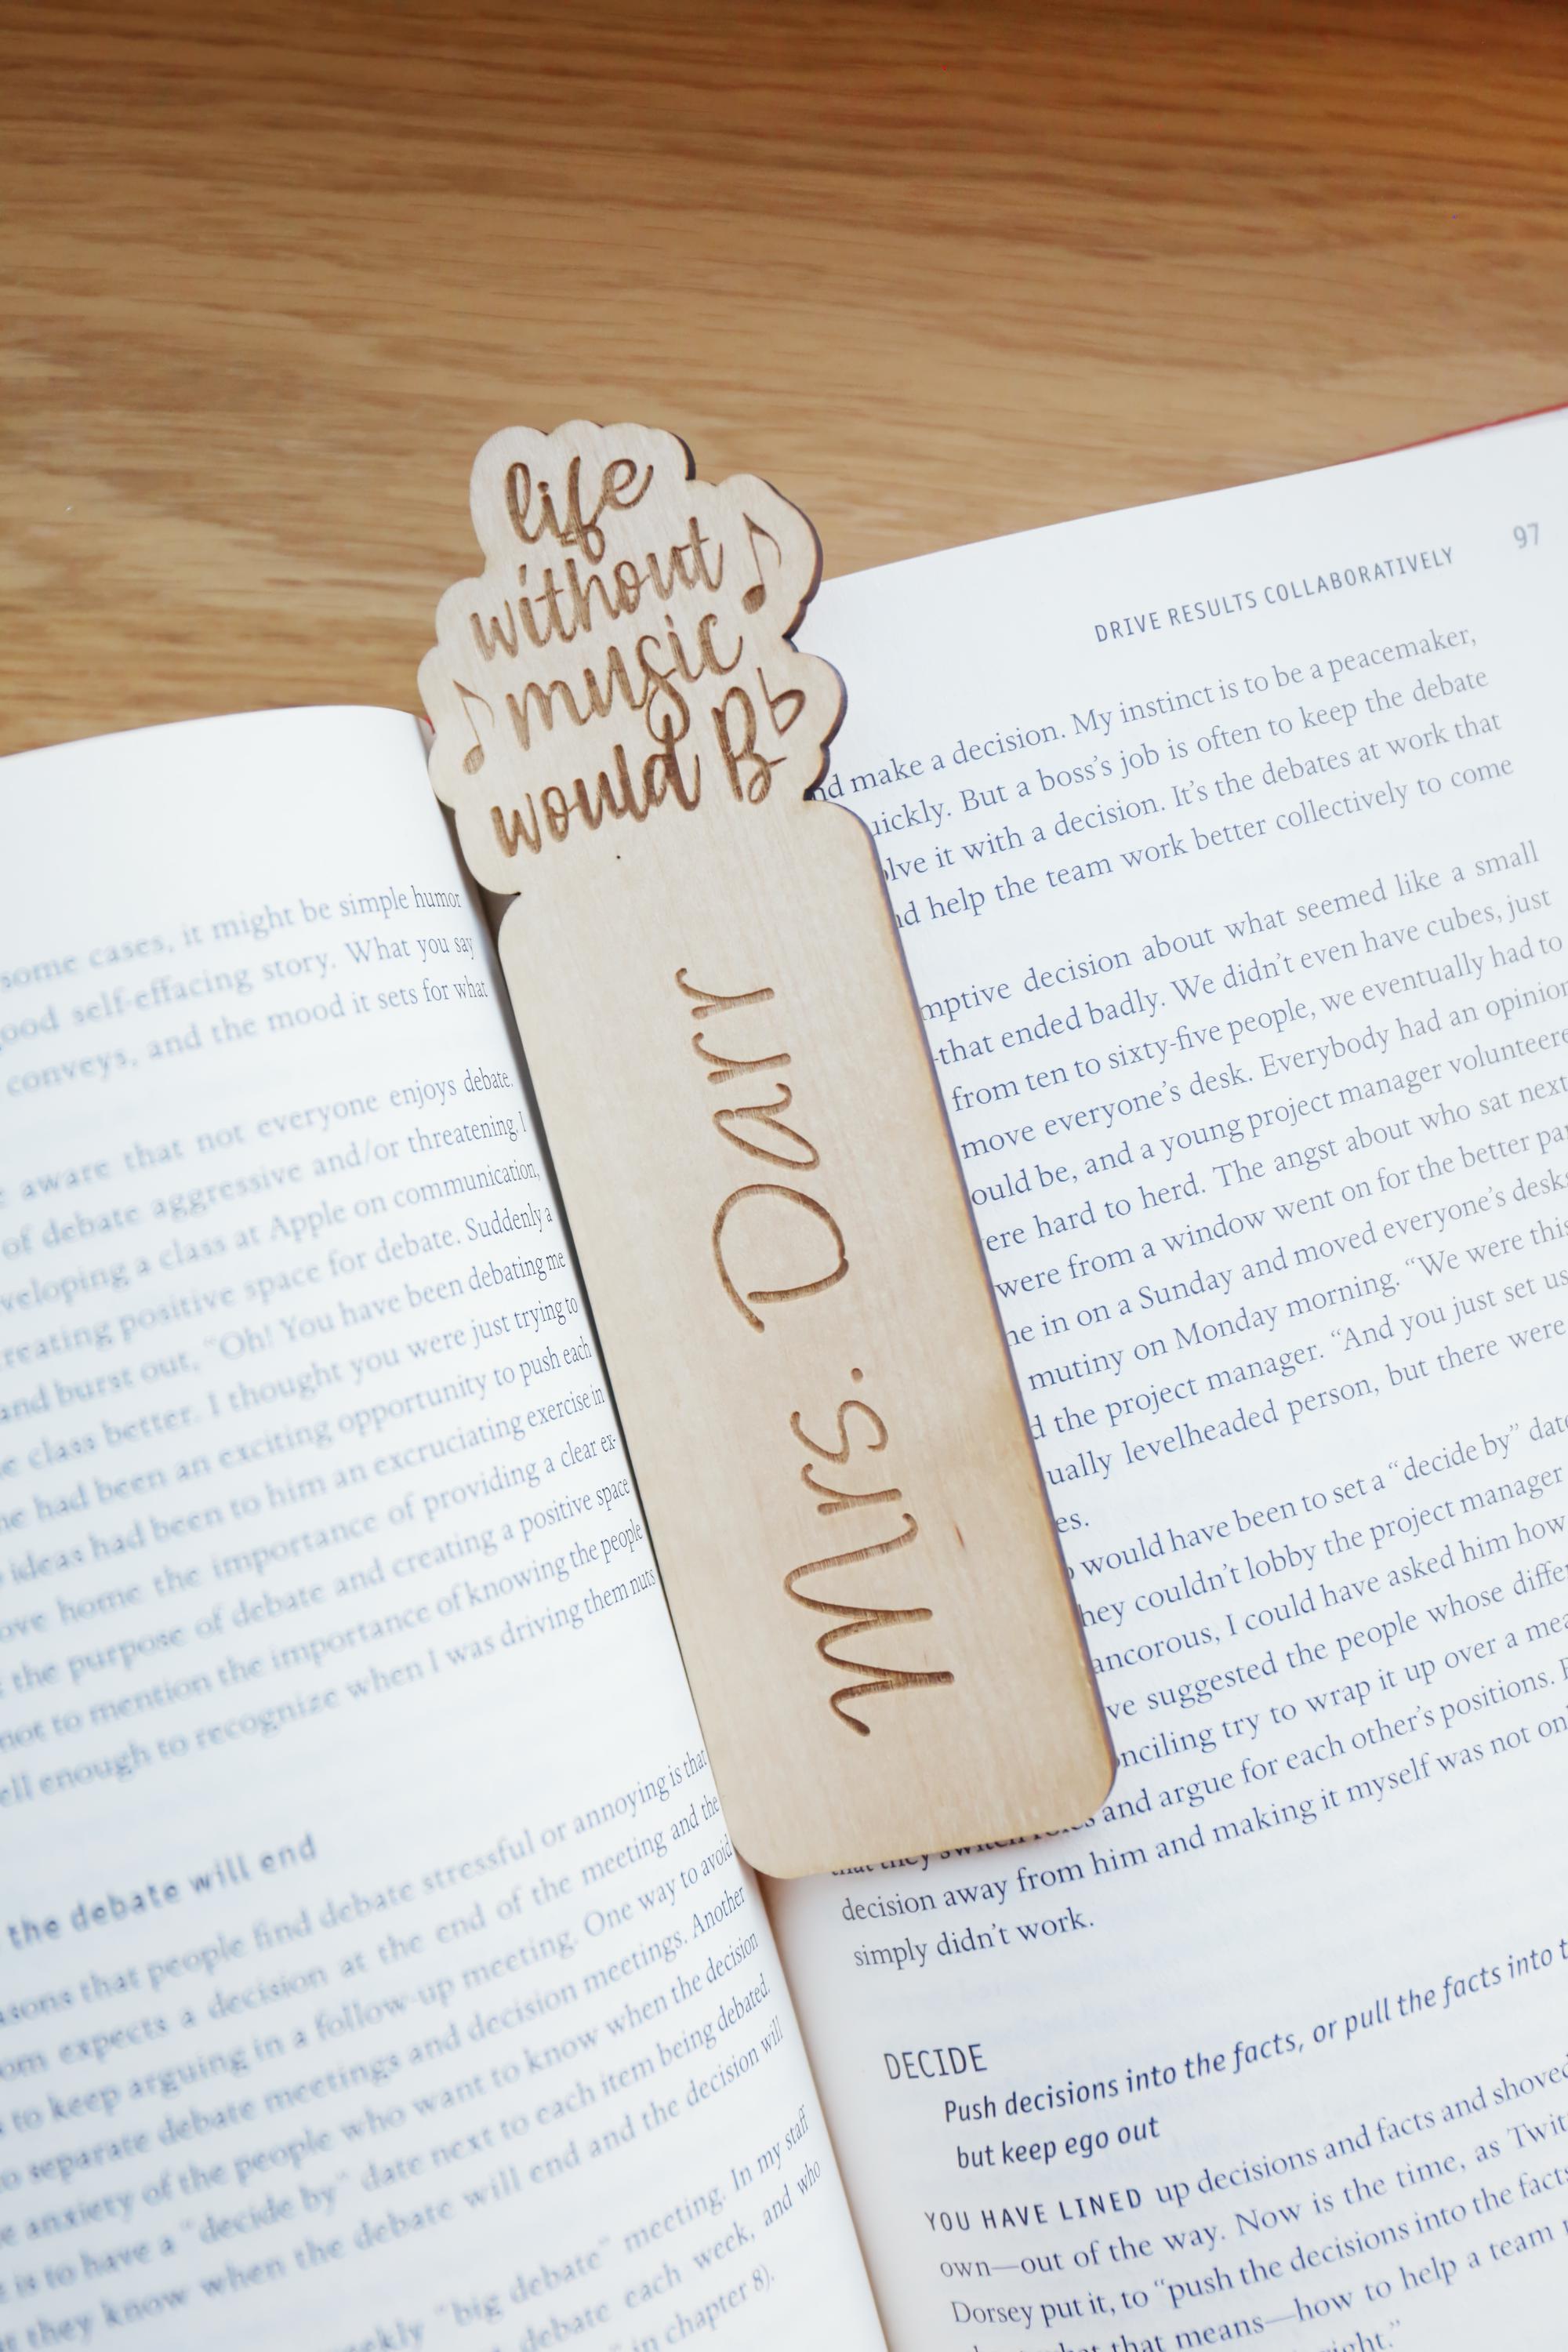 life
without
music
would B♭
Mrs. Darr
some cases, it might be simple humor
good self-effacing story. What you say
conveys, and the mood it sets for what
aware that not everyone enjoys debate.
of debate aggressive and/or threatening. I
veloping a class at Apple on communication,
reating positive space for debate. Suddenly a
and burst out, "Oh! You have been debating me
class better. I thought you were just trying to
had been an exciting opportunity to push each
ideas had been to him an excruciating exercise in
ove home the importance of providing a clear ex-
the purpose of debate and creating a positive space
not to mention the importance of knowing the people
ell enough to recognize when I was driving them nuts
the debate will end
asons that people find debate stressful or annoying is that
om expects a decision at the end of the meeting and the
to keep arguing in a follow-up meeting. One way to avoid
o separate debate meetings and decision meetings. Another
e anxiety of the people who want to know when the decision
is to have a "decide by" date next to each item being debated.
they know when the debate will end and the decision will
eekly "big debate" meeting. In my staff
debate each week, and who
in chapter 8).
DRIVE RESULTS COLLABORATIVELY 97
nd make a decision. My instinct is to be a peacemaker,
uickly. But a boss's job is often to keep the debate
olve it with a decision. It's the debates at work that
nd help the team work better collectively to come
mptive decision about what seemed like a small
-that ended badly. We didn't even have cubes, just
from ten to sixty-five people, we eventually had to
move everyone's desk. Everybody had an opinion
ould be, and a young project manager volunteere
ere hard to herd. The angst about who sat next
were from a window went on for the better par
ne in on a Sunday and moved everyone's desks
mutiny on Monday morning. "We were this
d the project manager. "And you just set us
ually levelheaded person, but there were
es.
would have been to set a "decide by" date
hey couldn't lobby the project manager
ancorous, I could have asked him how
ve suggested the people whose differ
onciling try to wrap it up over a mea
and argue for each other's positions.
that they switch roles
decision away from him and making it myself was not on
simply didn't work.
DECIDE
Push decisions into the facts, or pull the facts into t
but keep ego out
YOU HAVE LINED up decisions and facts and shoved
own—out of the way. Now is the time, as Twit
Dorsey put it, to "push the decisions into the facts
what that means—how to help a team
right."